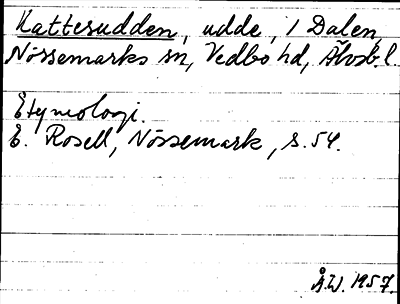 Kattesudden, udde, i Dalen,
Nössemarks sn, Vedbo hd, Älvsb. l.
Etymologi.
E. Rosell, Nössemark, s. 54.
Å.W. 1957.